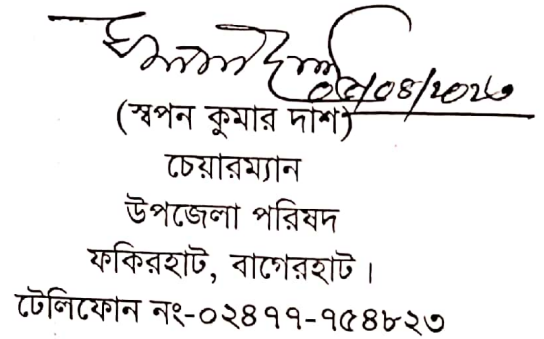 ০৫/০৪/২০২৩
(স্বপন কুমার দাশ)
চেয়ারম্যান
উপজেলা পরিষদ
ফকিরহাট, বাগেরহাট।
টেলিফোন নং-০২৪৭৭-৭৫৪৮২৩